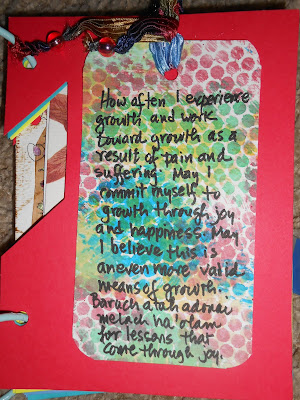 How often I experience
growth and work
toward growth as a
result of pain and
suffering. May I
commit myself to
growth through joy
and happiness. May
I believe this is
an even more valid
means of growth.
Baruch atah adonai
melach ha olam
for lessons that
come through joy.